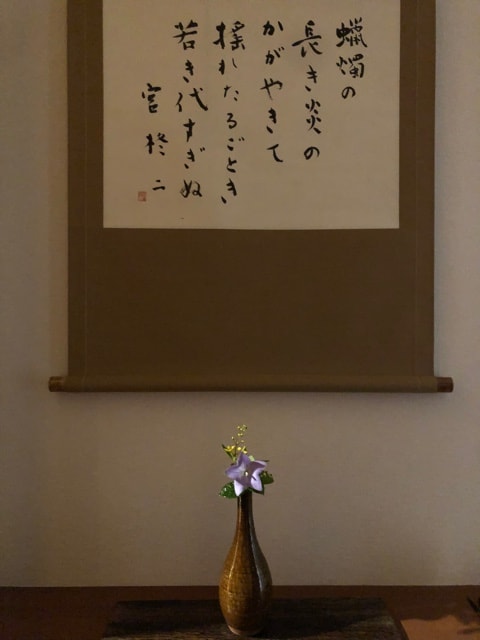 蠟燭の
長き炎の
かがやきて
揺れたるごとき
若き代すぎぬ
宮柊二